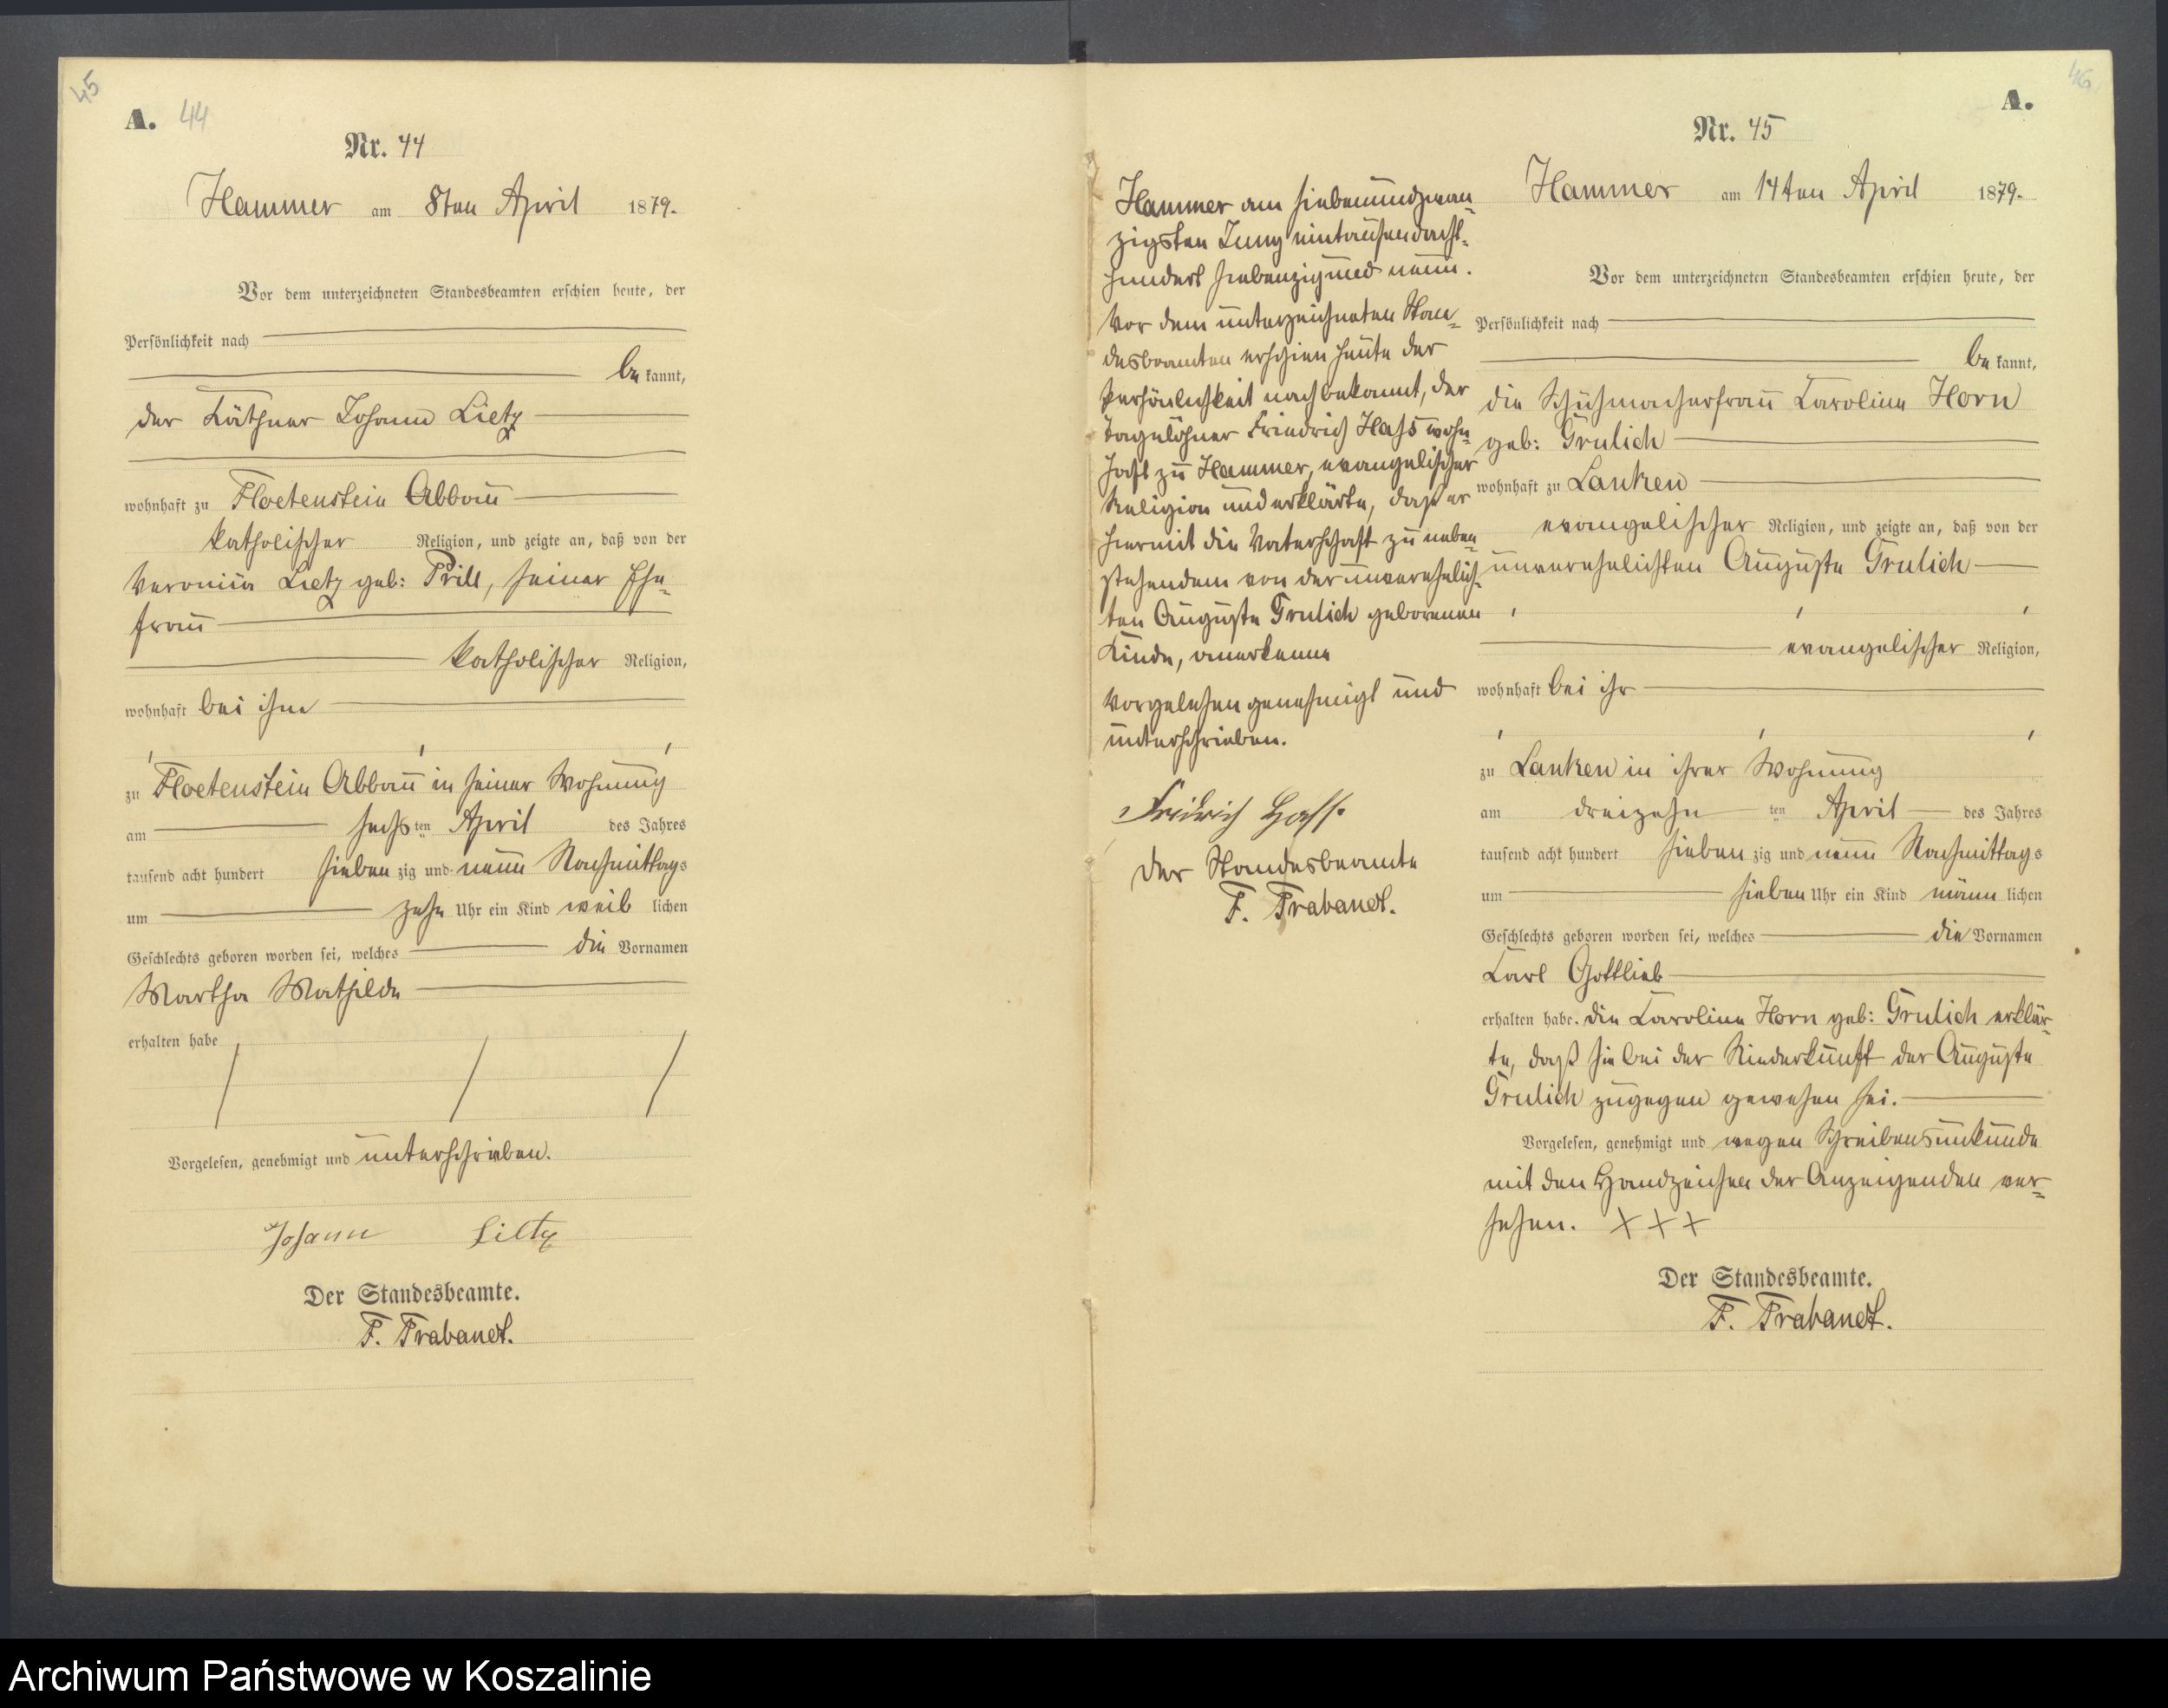 45
A. 44
Nr. 44
Hammer am 8ten April 1879.
Vor dem unterzeichneten Standesbeamten erschien heute, der
Persönlichkeit nach
be kannt,
der Käthner Johann Lietz
wohnhaft zu Floetenstein Abbau
katholischer Religion, und zeigte an, daß von der
Veronica Lietz geb: Prill, seiner Ehe-
frau
katholischer Religion,
wohnhaft bei ihm
zu Floetenstein Abbau in seiner Wohnung
am sechs ten April des Jahres
tausend acht hundert sieben zig und neun Nachmittags
um zehn Uhr ein Kind weib lichen
Geschlechts geboren worden sei, welches die Vornamen
Martha Mathilde
erhalten habe
Vorgelesen, genehmigt und unterschrieben.
Johann Lietz
Der Standesbeamte.
F. Trabandt.
Hammer am siebenundzwan-
zigsten Juny eintausendacht-
hundert siebenzigund neun.
Vor dem unterzeichneten Stan-
desbeamten erschien heute der
Persönlichkeit nach bekannt, der
Tagelöhner Friedrich Hass wohn-
haft zu Hammer, evangelischer
Religion und erklärte, daß er
hiermit die Vaterschaft zu neben-
stehendem von der unverehelich-
ten Auguste Grulich geborenen
Kinde, anerkenne
Vorgelesen genehmigt und
unterschrieben.
Fridrich Hass.
Der Standesbeamte
F. Trabandt.
46
A.
Nr. 45
Hammer am 14ten April 1879.
Vor dem unterzeichneten Standesbeamten erschien heute, der
Persönlichkeit nach
be kannt,
die Schuhmacherfrau Caroline Horn
geb: Grulich
wohnhaft zu Lanken
evangelischer Religion, und zeigte an, daß von der
unverehelichten Auguste Grulich
evangelischer Religion,
wohnhaft bei ihr
zu Lanken in ihrer Wohnung
am dreizehn ten April des Jahres
tausend acht hundert sieben zig und neun Nachmittags
um sieben Uhr ein Kind männ lichen
Geschlechts geboren worden sei, welches die Vornamen
Carl Gottlieb
erhalten habe. Die Caroline Horn geb: Grulich erklär-
te, daß sie bei der Niederkunft der Auguste
Grulich zugegen gewesen sei.
Vorgelesen, genehmigt und wegen Schreibensunkunde
mit den Handzeichen der Anzeigenden ver-
sehen. X X X
Der Standesbeamte.
F. Trabandt.
Archiwum Państwowe w Koszalinie